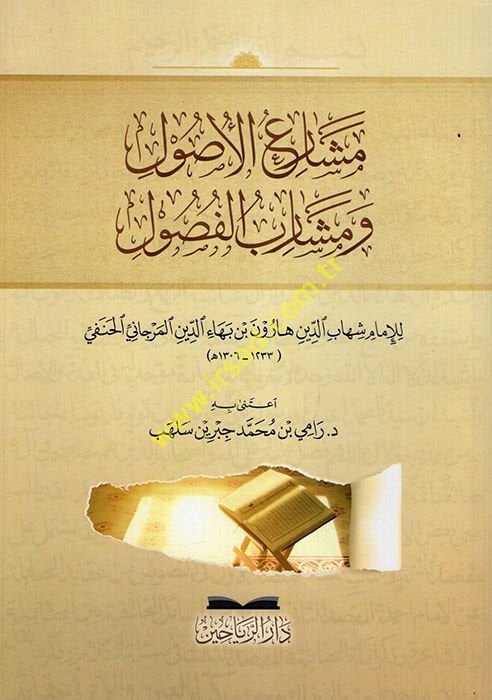 مَشَارِعُ الأُصُولِ
وَمَشَارِبُ الفُصُولِ
لِلإِمَامِ شِهَابِ الدِّينِ هَارُوْنَ بْنِ بَهَاءِ الدِّينِ المَرْجَانِيِّ الحَنَفِيِّ
(١٢٣٣ - ١٣٠٦هـ)
اعْتَنَى بِهِ
د. رَامِي بْن مُحَمَّد جِبْرِيْن سَلْهَب
www.irsad.com.tr
دَارُ الرَّيَاحِين